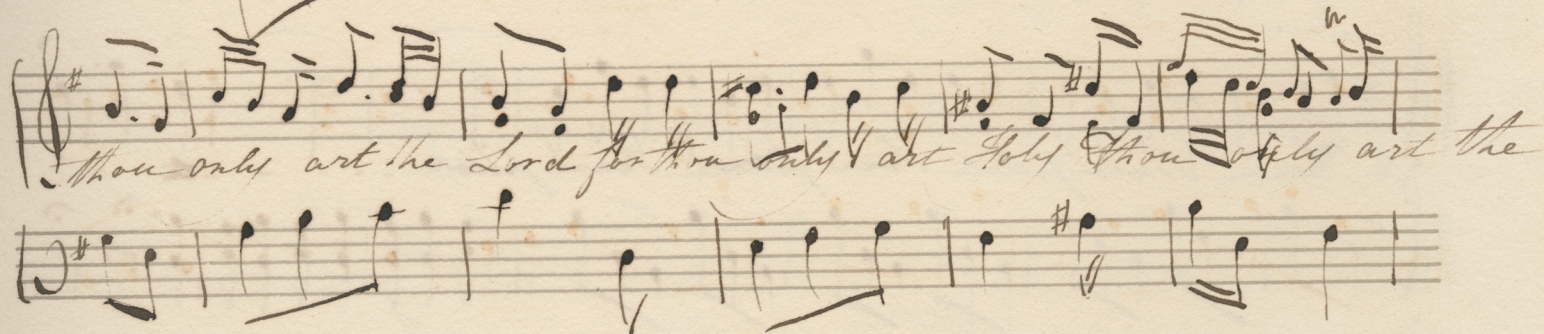 thou only art the Lord for thou only art Holy thou only art the